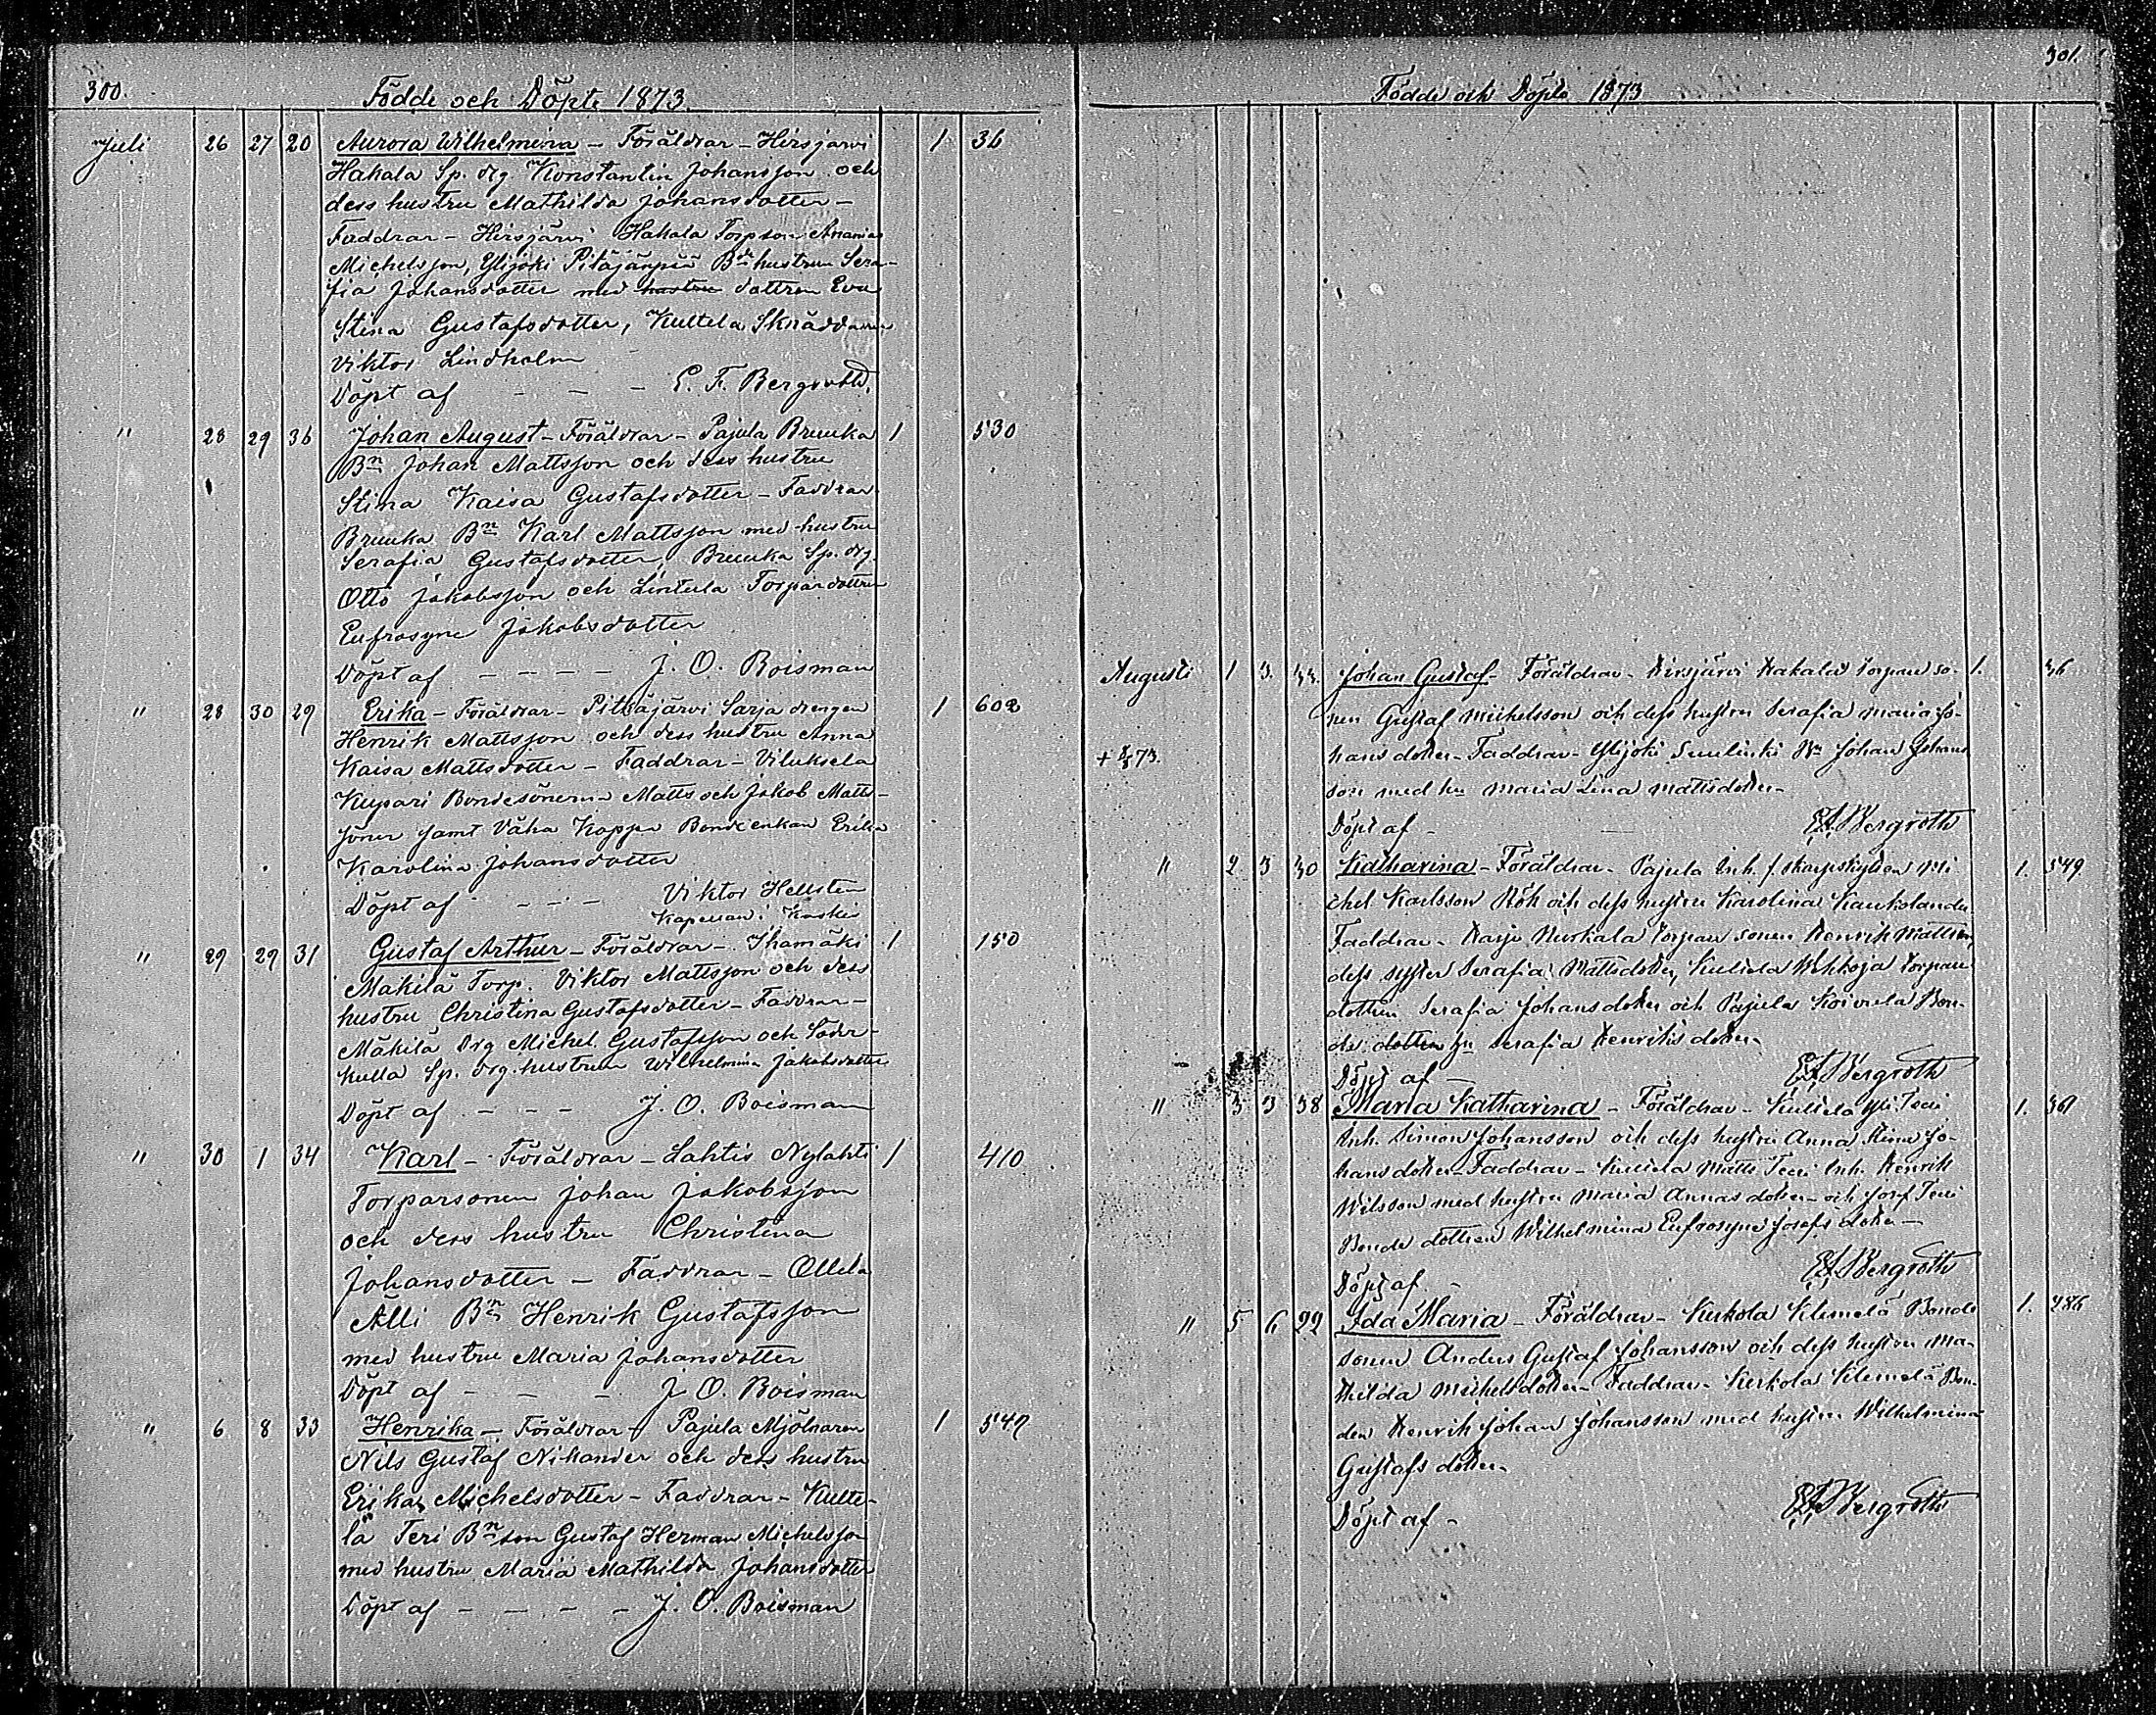 300.
Födde och Döpte 1873.
Juli 26 27 20 Aurora Wilhelmina – Föräldrar – Hirsjärvi 1 36
Hakala Sp. drg Konstantin Johansson och
dess hustru Mathilda Johansdotter –
Faddrar – Hirsjärvi Hakala Torpson Ananias
Michelsson, Ylijoki Pitäjänpää Bde hustrun Sera-
fia Johansdotter med hustru dottren Eva
Stina Gustafsdotter, Kultela Skräddaren
Viktor Lindholm
Döpt af – – E. F. Bergroth.
" 28 29 36 Johan August – Föräldrar – Pajula Bruuka 1 530
Bn Johan Mattsson och dess hustru
Stina Kaisa Gustafsdotter – Faddrar
Bruuka Bn Karl Mattsson med hustru
Serafia Gustafsdotter, Bruuka Sp. drg.
Otto Jakobsson och Lintula Torpardottren
Eufrosyne Jakobsdotter
Döpt af – – – – J. O. Boisman
" 28 30 29 Erika – Föräldrar – Pitkäjärvi Sarja drengen 1 602
Henrik Mattsson och dess hustru Anna
Kaisa Mattsdotter – Faddrar – Viluksela
Kupari Bondesönerna Matts och Jakob Matts-
söner samt Väha Koppa Bondeenkan Erika
Karolina Johansdotter
Döpt af – – – Viktor Hellsten
Kapellan i Koskis
" 29 29 31 Gustaf Arthur – Föräldrar – Ihamäki 1 150
Mäkilä Torp. Viktor Mattsson och dess
hustru Christina Gustafsdotter – Faddrar –
Mäkilä Drg Michel Gustafsson och Söder-
kulla Sp. drg. hustrun Wilhelmina Jakobsdotter
Döpt af – – – J. O. Boisman
" 30 1 34 Karl – Föräldrar – Lahtis Nylahti 1 410
Torparsonen Johan Jakobsson
och dess hustru Christina
Johansdotter – Faddrar – Ollila
Älli Bn Henrik Gustafsson
med hustru Maria Johansdotter
Döpt af – – – J. O. Boisman
" 6 8 33 Henrika – Föräldrar – Pajula Mjölnaren 1 547
Nils Gustaf Nikander och dess hustru
Erika Michelsdotter – Faddrar – Kulte-
la Teri Bn son Gustaf Herman Michelsson
med hustru Maria Mathilda Johansdotter
Döpt af – – – – J. O. Boisman
301.
Födde och Döpte 1873
Augusti 1 3. 33. Johan Gustaf – Föräldrar – Hirsjärvi Hakala torpare so- 1. 36
nen Gustaf Michelsson och dess hustru Serafia Maria Jo-
+ 73. hansdotter – Faddrar – Ylijoki Suulinki Bn Johan Johans
son med hu Maria Lina Mattsdotter –
Döpt af – EF Bergroth
" 2 3 30 Katharina – Föräldrar – Pajula Inh. f. skarpskytten Mi 1. 549
chel Karlsson Rök och dess hustru Karolina Kaukolander
Faddrar – Harju Nurkala torpare sonen Henrik Mattsson,
dess syster Serafia Mattsdotter, Kultela torpare
dottren Serafia Johansdotter och Pajula Koivula Bon-
de dottren hu Serafia Henriksdotter –
Döpt af – EF Bergroth
" 3 3 38 Maria Katharina – Föräldrar – Kultela Yli Teri 1. 361
Inh. Simon Johansson och dess hustru Anna Stina Jo-
hansdotter – Faddrar – Kultela Matts Teri Inh. Henrik
Wilsson med hustru Maria Annasdotter – och Josef Teri
Bonde dottren Wilhelmina Eufrosyne Josefsdotter –
Döpt af – EF Bergroth
" 5 6 22 Ida Maria – Föräldrar – Kurkola Klemelä Bonde 1. 286
sonen Anders Gustaf Johansson och dess hustru Ma-
thilda Michelsdotter – Faddrar – Kurkola Klemelä Bon-
den Henrik Johan Johansson med hustru Wilhelmina
Gustafsdotter –
Döpt af – EF Bergroth